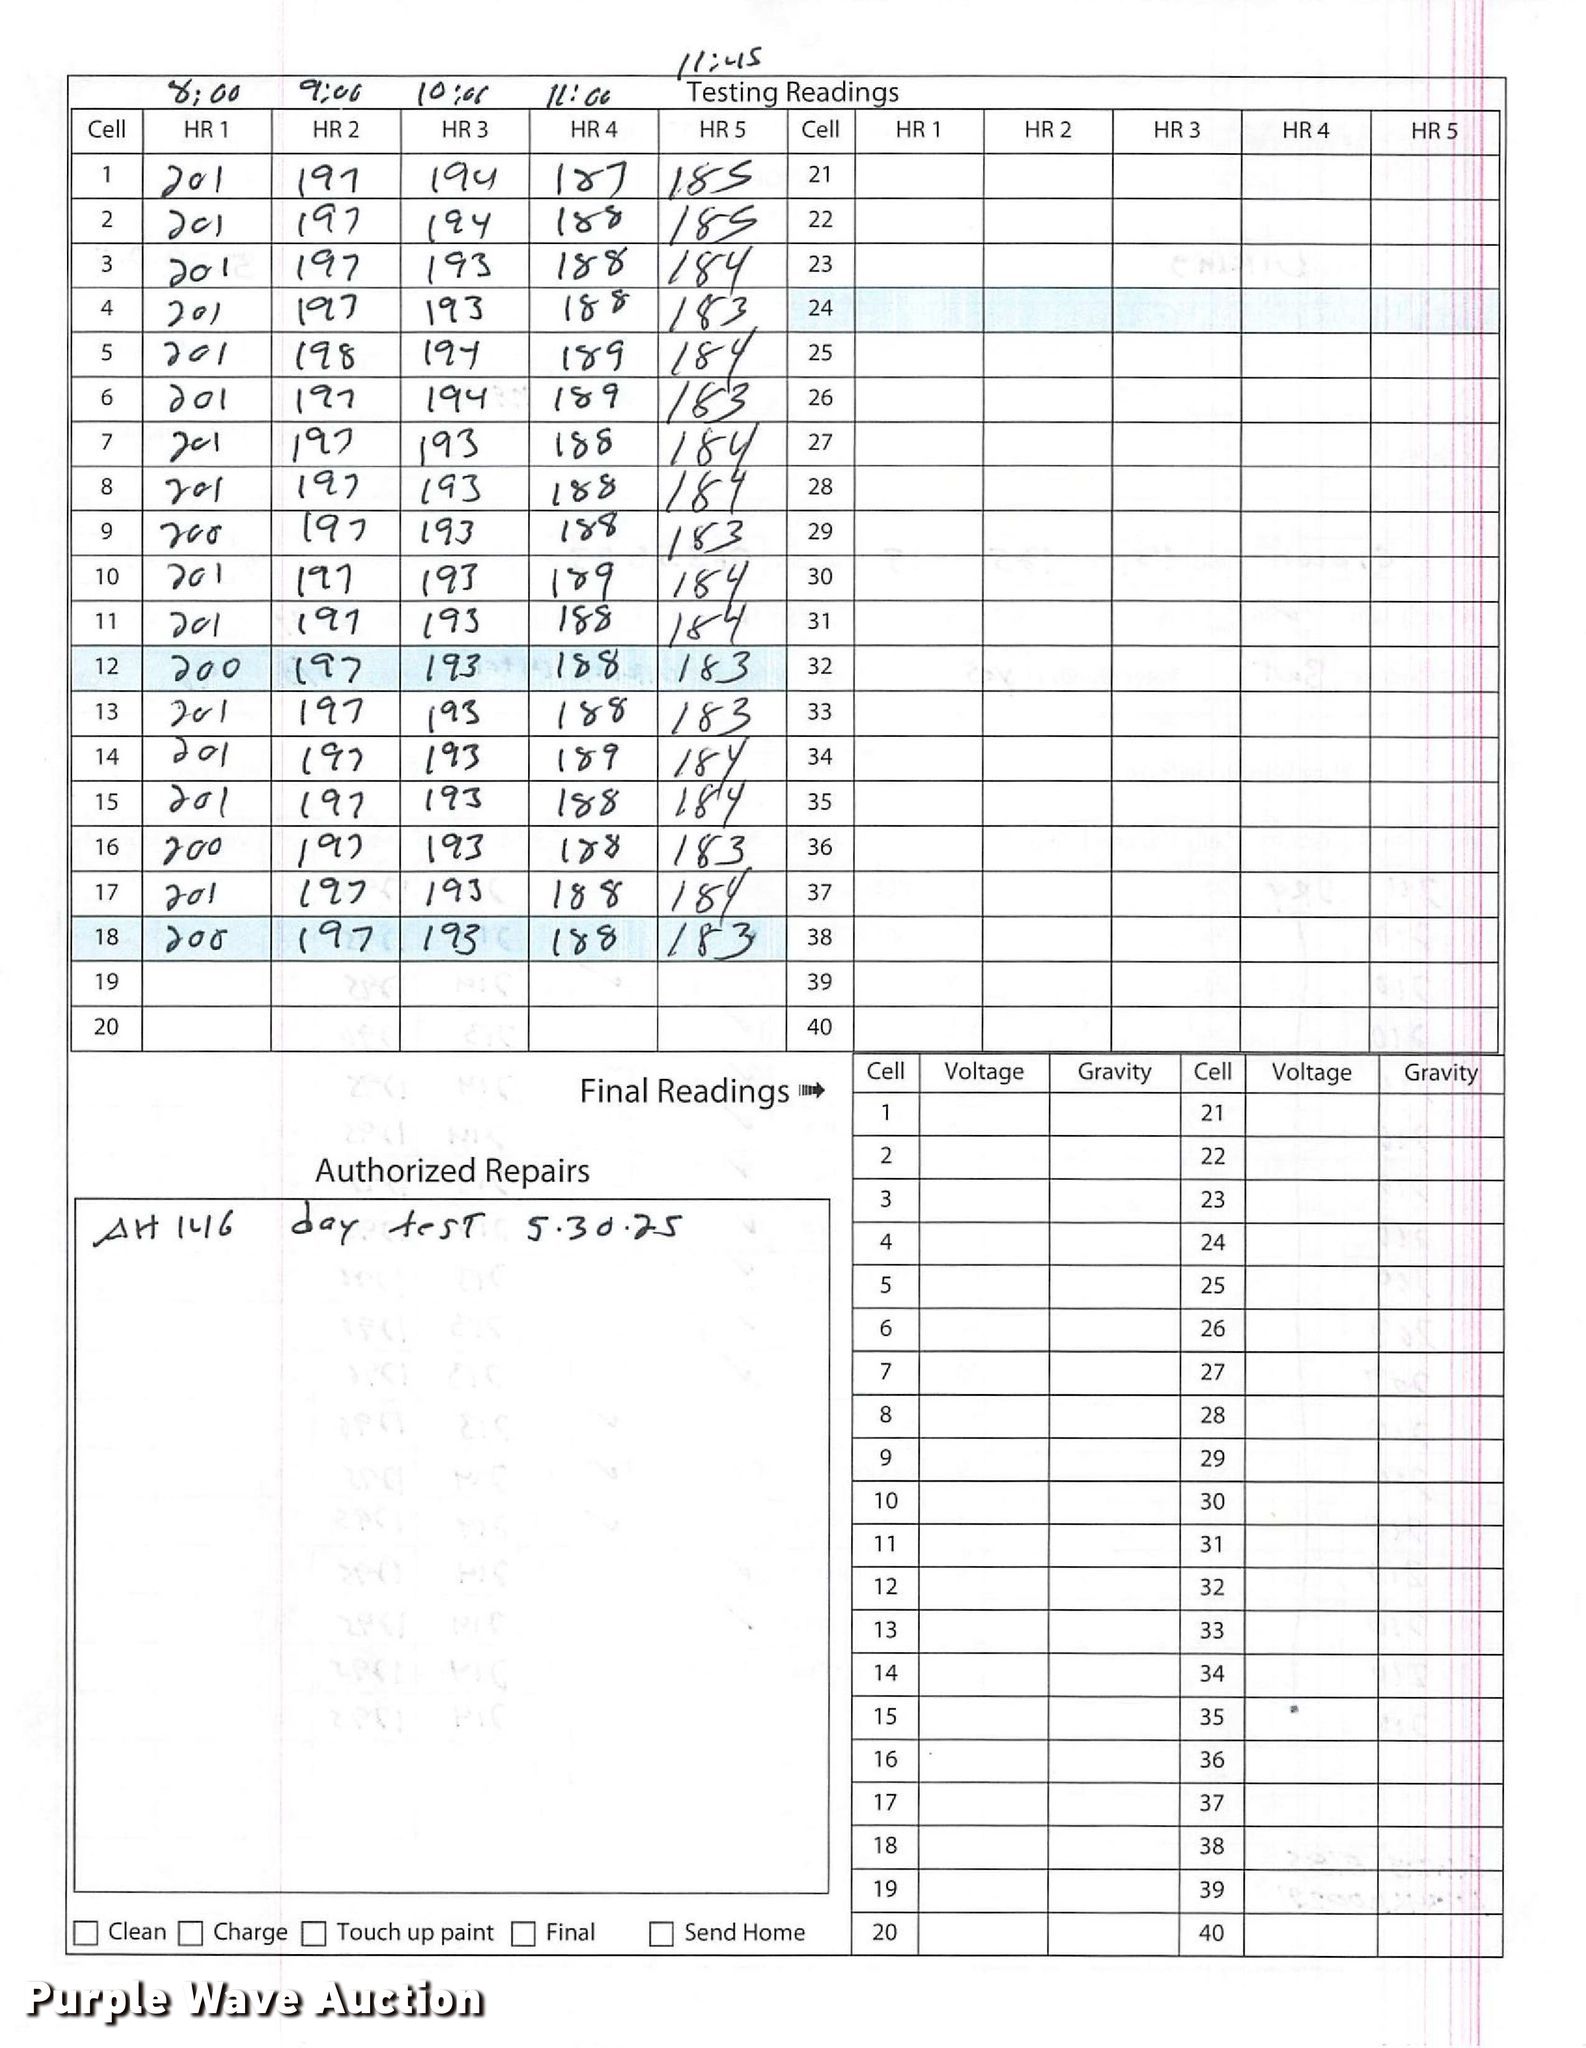 11:45
8:00 9:00 10:00 11:00 Testing Readings
Cell HR 1 HR 2 HR 3 HR 4 HR 5 Cell HR 1 HR 2 HR 3 HR 4 HR 5
1 201 197 194 187 185 21
2 201 197 194 188 185 22
3 201 197 193 188 184 23
4 201 197 193 188 183 24
5 201 198 194 189 184 25
6 201 197 194 189 183 26
7 201 197 193 188 184 27
8 201 197 193 188 184 28
9 200 197 193 188 183 29
10 201 197 193 189 184 30
11 201 197 193 188 184 31
12 200 197 193 188 183 32
13 201 197 193 188 183 33
14 201 197 193 189 184 34
15 201 197 193 188 184 35
16 200 197 193 188 183 36
17 201 197 193 188 184 37
18 200 197 193 188 183 38
19 39
20 40
Final Readings
Cell Voltage Gravity Cell Voltage Gravity
1 21
2 22
3 23
4 24
5 25
6 26
7 27
8 28
9 29
10 30
11 31
12 32
13 33
14 34
15 35
16 36
17 37
18 38
19 39
20 40
Authorized Repairs
AH 1416 day test 5.30.25
Clean Charge Touch up paint Final Send Home
Purple Wave Auction